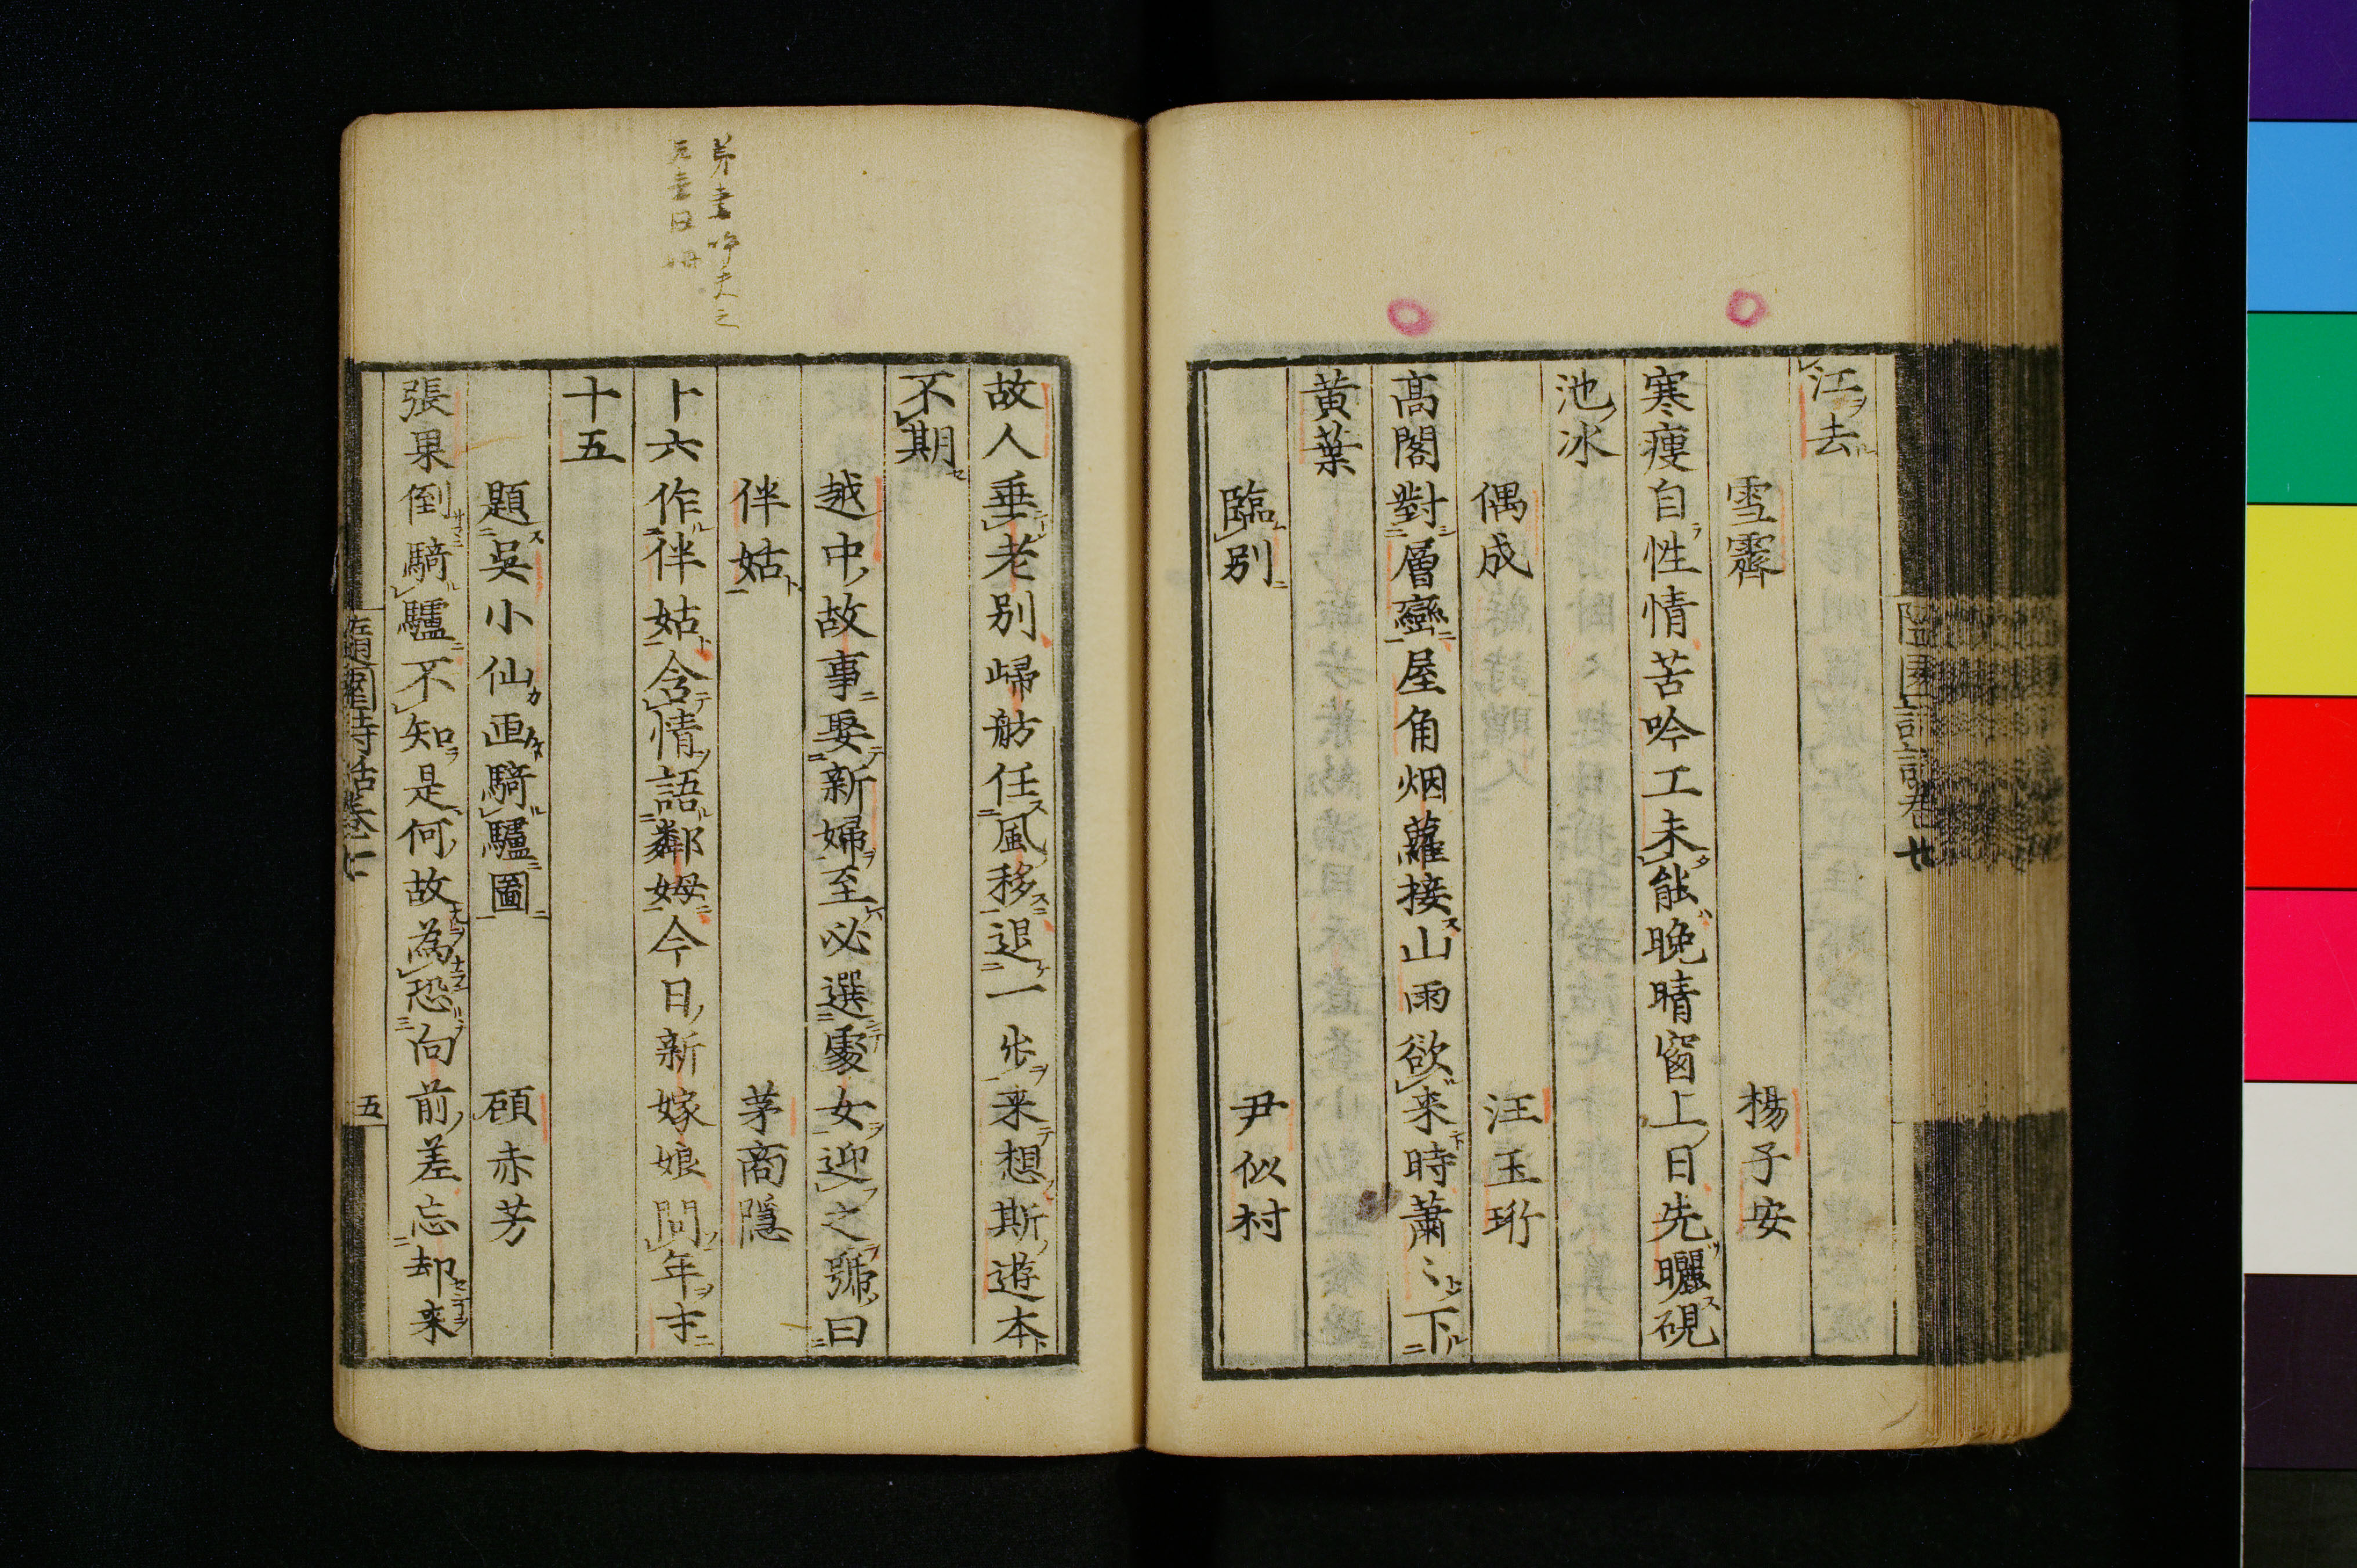 江去
雪霽 楊子安
寒瘦自性情苦吟工未能晚晴窗上日先曬硯
池冰
偶成 汪玉珩
高閣對層巒屋角烟蘿接山雨欲来時蕭〻下
黄葉
臨别 尹似村
故人垂老别歸舫任風移退一步来想斯遊本
不期
越中故事娶新婦至必選處女迎之號曰
伴姑 茅商隱
卜六作伴姑含情語鄰姆今日新嫁娘問年才
十五
題吳小仙画騎驢圖 顧赤芳
張果倒騎驢不知是何故為恐向前差忘却来
五